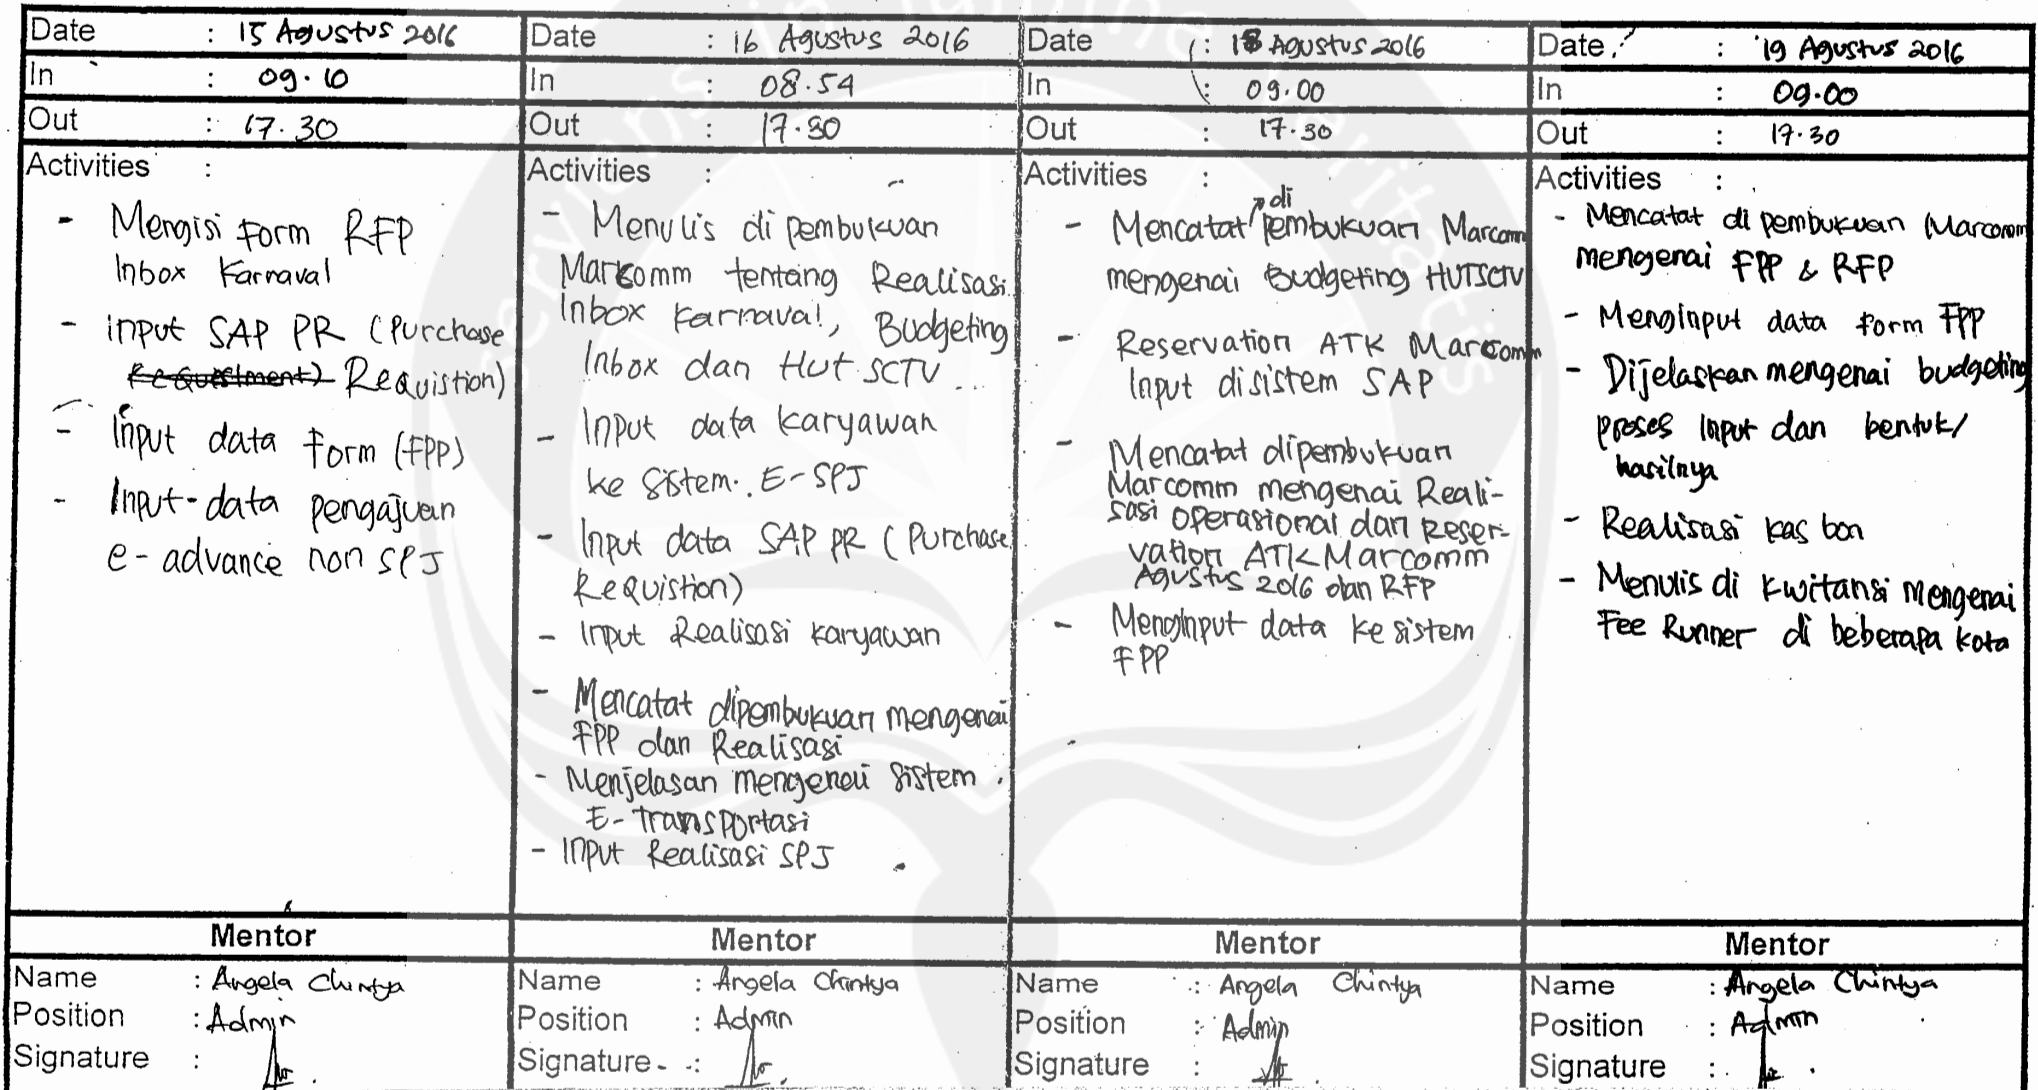 Date : 15 Agustus 2016
In : 09.10
Out : 17.30
Activities :
- Mengisi Form RFP
Inbox Karnaval
- input SAP PR (Purchase
Requistment) Requistion)
- Input data Form (FPP)
- Input-data pengajuan
e-advance non SPJ
Mentor
Name : Angela Chintya
Position : Admin
Signature :
Date : 16 Agustus 2016
In : 08.54
Out : 17.30
Activities :
- Menulis di pembukuan
Marcomm tentang Realisasi
Inbox Karnaval, Budgeting
Inbox dan Hut SCTV
- Input data Karyawan
ke Sistem E-SPJ
- Input data SAP PR (Purchase
Requistion)
- Input Realisasi Karyawan
- Mencatat dipembukuan mengenai
FPP dan Realisasi
- Menjelasan mengenai Sistem
E-Transportasi
- Input Realisasi SPJ
Mentor
Name : Angela Chintya
Position : Admin
Signature :
Date : 18 Agustus 2016
In : 09.00
Out : 17.30
Activities :
- Mencatat di pembukuan Marcomm
mengenai Budgeting HUTSCTV
- Reservation ATK Marcomm
Input disistem SAP
- Mencatat dipembukuan
Marcomm mengenai Reali-
sasi operasional dan Reser-
vation ATK Marcomm
Agustus 2016 dan RFP
- Menginput data ke sistem
FPP
Mentor
Name : Angela Chintya
Position : Admin
Signature :
Date : 19 Agustus 2016
In : 09.00
Out : 17.30
Activities :
- Mencatat di pembukuan Marcomm
mengenai FPP & RFP
- Menginput data form FPP
- Dijelaskan mengenai budgeting
proses input dan bentuk/
hasilnya
- Realisasi kas bon
- Menulis di Kwitansi mengenai
Fee Runner di beberapa kota
Mentor
Name : Angela Chintya
Position : Admin
Signature :